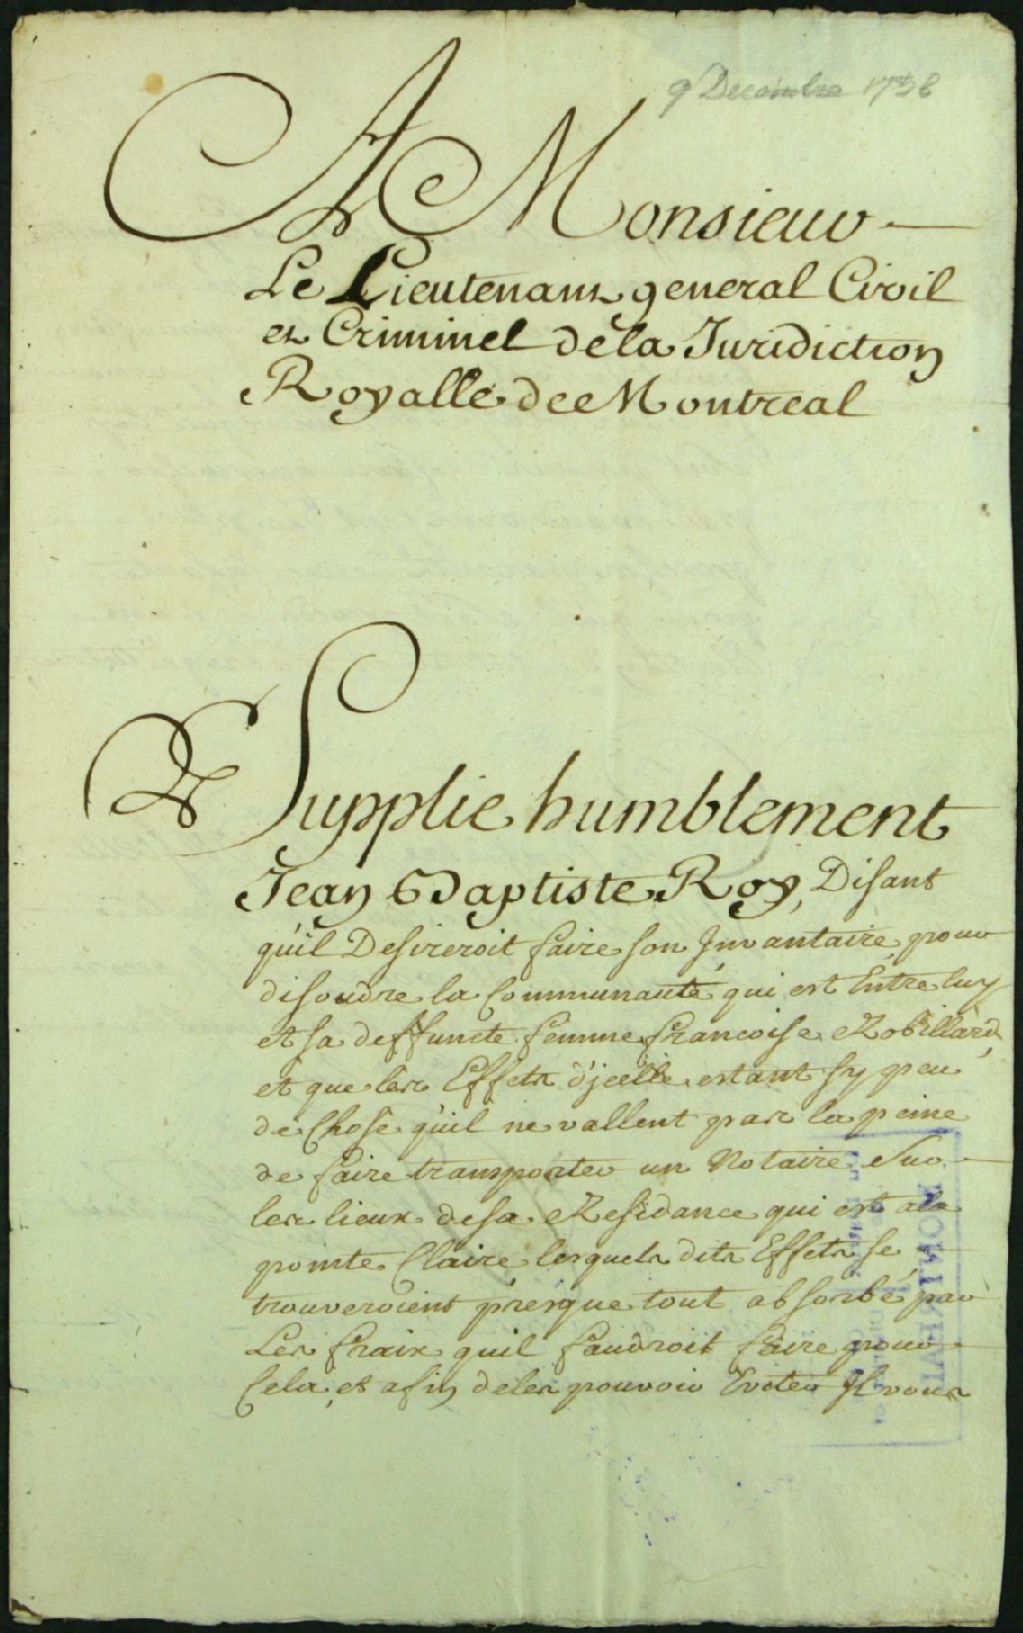 9 Decembre 1738
A Monsieur
Le Lieutenant general Civil
et Criminel de la Juridiction
Royalle de Montreal
Supplie humblement
Jean Baptiste Roy, Disant
qu'il Desireroit faire son Jnvantaire pour
disoudre la Communauté qui est Entre luy
et sa deffuncte femme francoise Robillard,
et que les Effets d'jcelle estant sy peu
de Chose qu'il ne vallent pas la peine
de faire transporter un Notaire Sur
les lieux de sa Residance qui est a la
pointe Claire, lesquels dits Effets se
trouveroient presque tout absorbé par
Les fraix quil faudroit faire pour
Cela, et afin de les pouvoir Eviter Jl vous